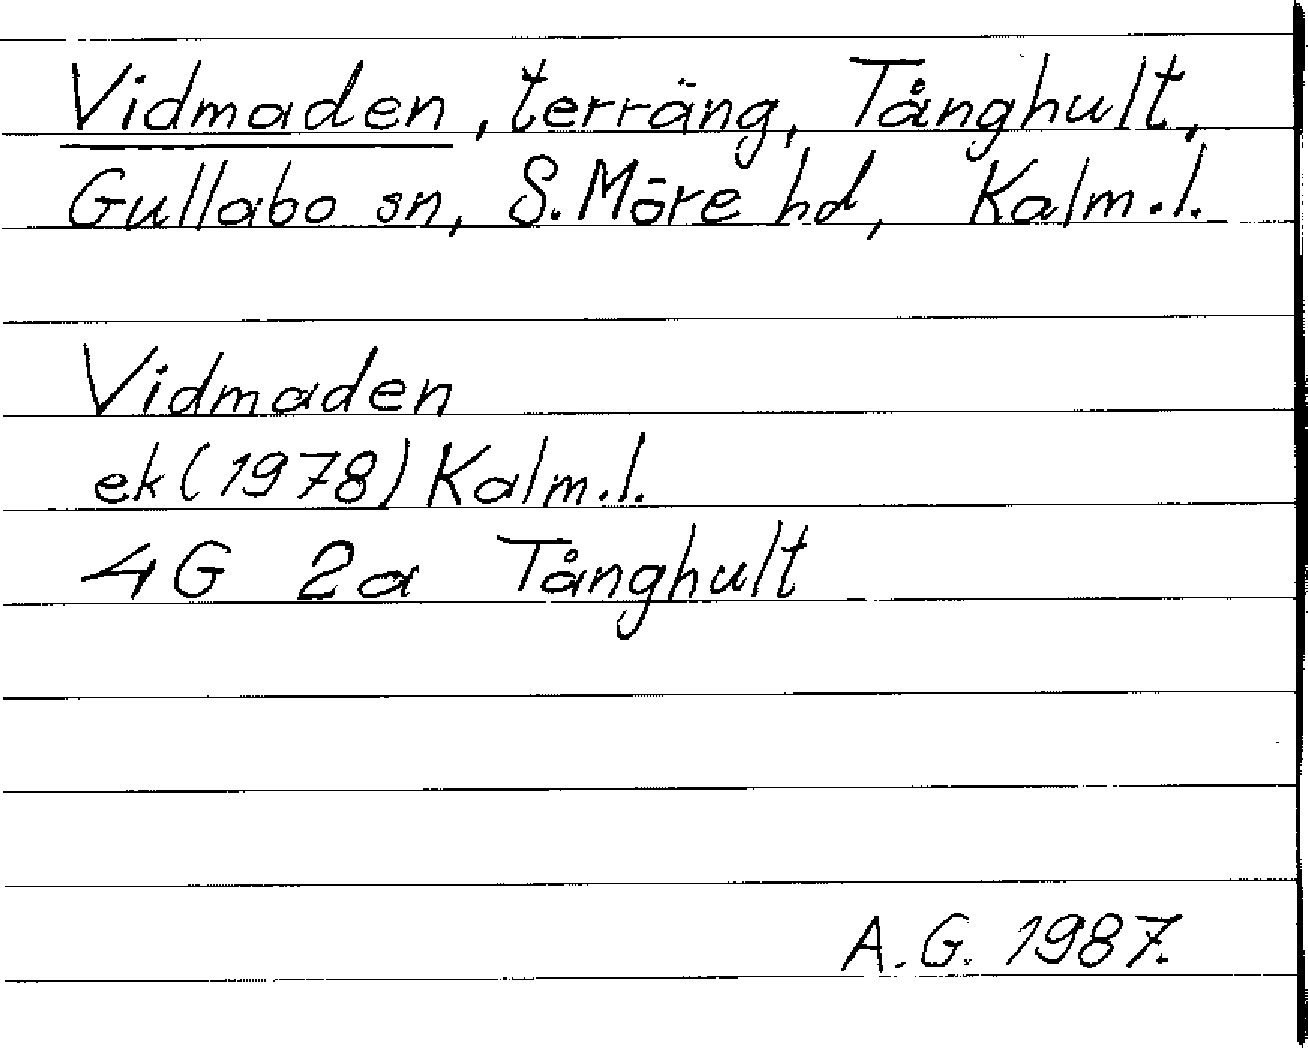 Vidmaden, terräng, Tånghult,
Gullabo sn, S. Möre hd, Kalm.l.
Vidmaden
ek (1978) Kalm.l.
4G 2a Tånghult
A.G. 1987.